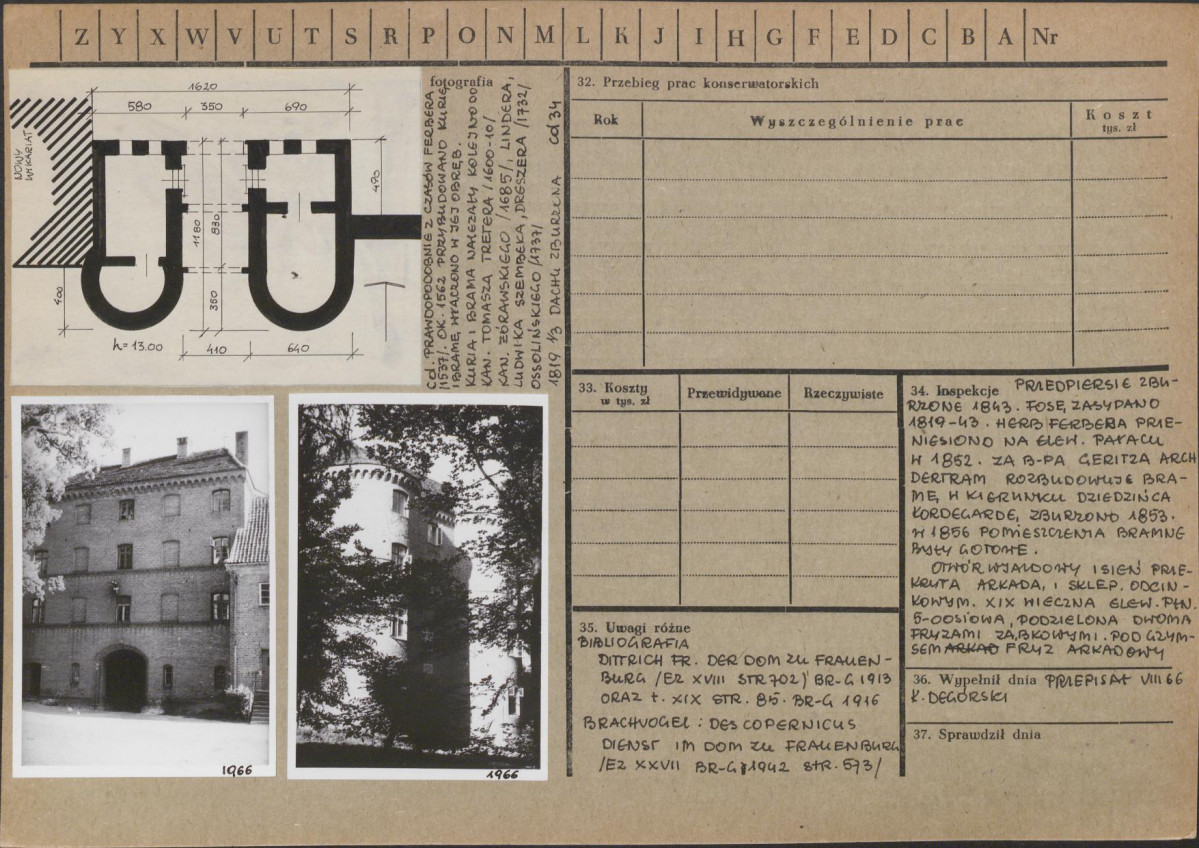 Z Y X W V U T S R P O N M L K J I H G F E D C B A Nr
1620
580 350 690
NOWY
WIKARIAT
490
1180
830
400
350
h=13.00
410 640
fotografia
cd. PRAWDOPODOBNIE Z CZASÓW FERBERA
/1537/. OK. 1562 PRZYBUDOWANO KURIĘ
I BRAMĘ WŁĄCZONO W JEJ OBRĘB.
KURIA I BRAMA NALEŻAŁY KOLEJNO DO
KAN. TOMASZA TRETERA /1600-10/
KAN. ŻÓRAWSKIEGO /1685/, LINDERA,
LUDWIKA SZEMBEKA, DRESZERA /1732/
OSSOLIŃSKIEGO /1737/
1819 1/3 DACHU ZBURZONA cd 34
1966
1966
32. Przebieg prac konserwatorskich
Rok Wyszczególnienie prac Koszt
tys. zł
33. Koszty
w tys. zł
Przewidywane Rzeczywiste
34. Inspekcje PRZEDPIERSIE ZBU-
RZONE 1843. FOSĘ ZASYPANO
1819-43. HERB FERBERA PRZE-
NIESIONO NA ELEW. PAŁACU
W 1852. ZA B-PA GERITZA ARCH
DERTRAM ROZBUDOWUJE BRA-
MĘ, W KIERUNKU DZIEDZIŃCA
KORDEGARDĘ, ZBURZONO 1853.
W 1856 POMIESZCZENIA BRAMNE
BYŁY GOTOWE.
OTWÓR WJAZDOWY I SIEŃ PRZE-
KRYTA ARKADĄ, I SKLEP. ODCIN-
KOWYM. XIX WIECZNA ELEW. PŁN.
5-OOSIOWA, PODZIELONA DWOMA
FRYZAMI ZĄBKOWYMI. POD GZYM-
SEM ARKAD FRYZ ARKADOWY
35. Uwagi różne
BIBLIOGRAFIA
DITTRICH FR. DER DOM ZU FRAUEN-
BURG /EZ XVIII STR 702/ BR-G 1913
ORAZ t. XIX STR. 85. BR-G 1916
BRACHVOGEL: DES COPERNICUS
DIENST IM DOM ZU FRAUENBURG
/EZ XXVII BR-G 1942 STR. 573/
36. Wypełnił dnia PRZEPISAŁ VIII 66
K. DEGÓRSKI
37. Sprawdził dnia